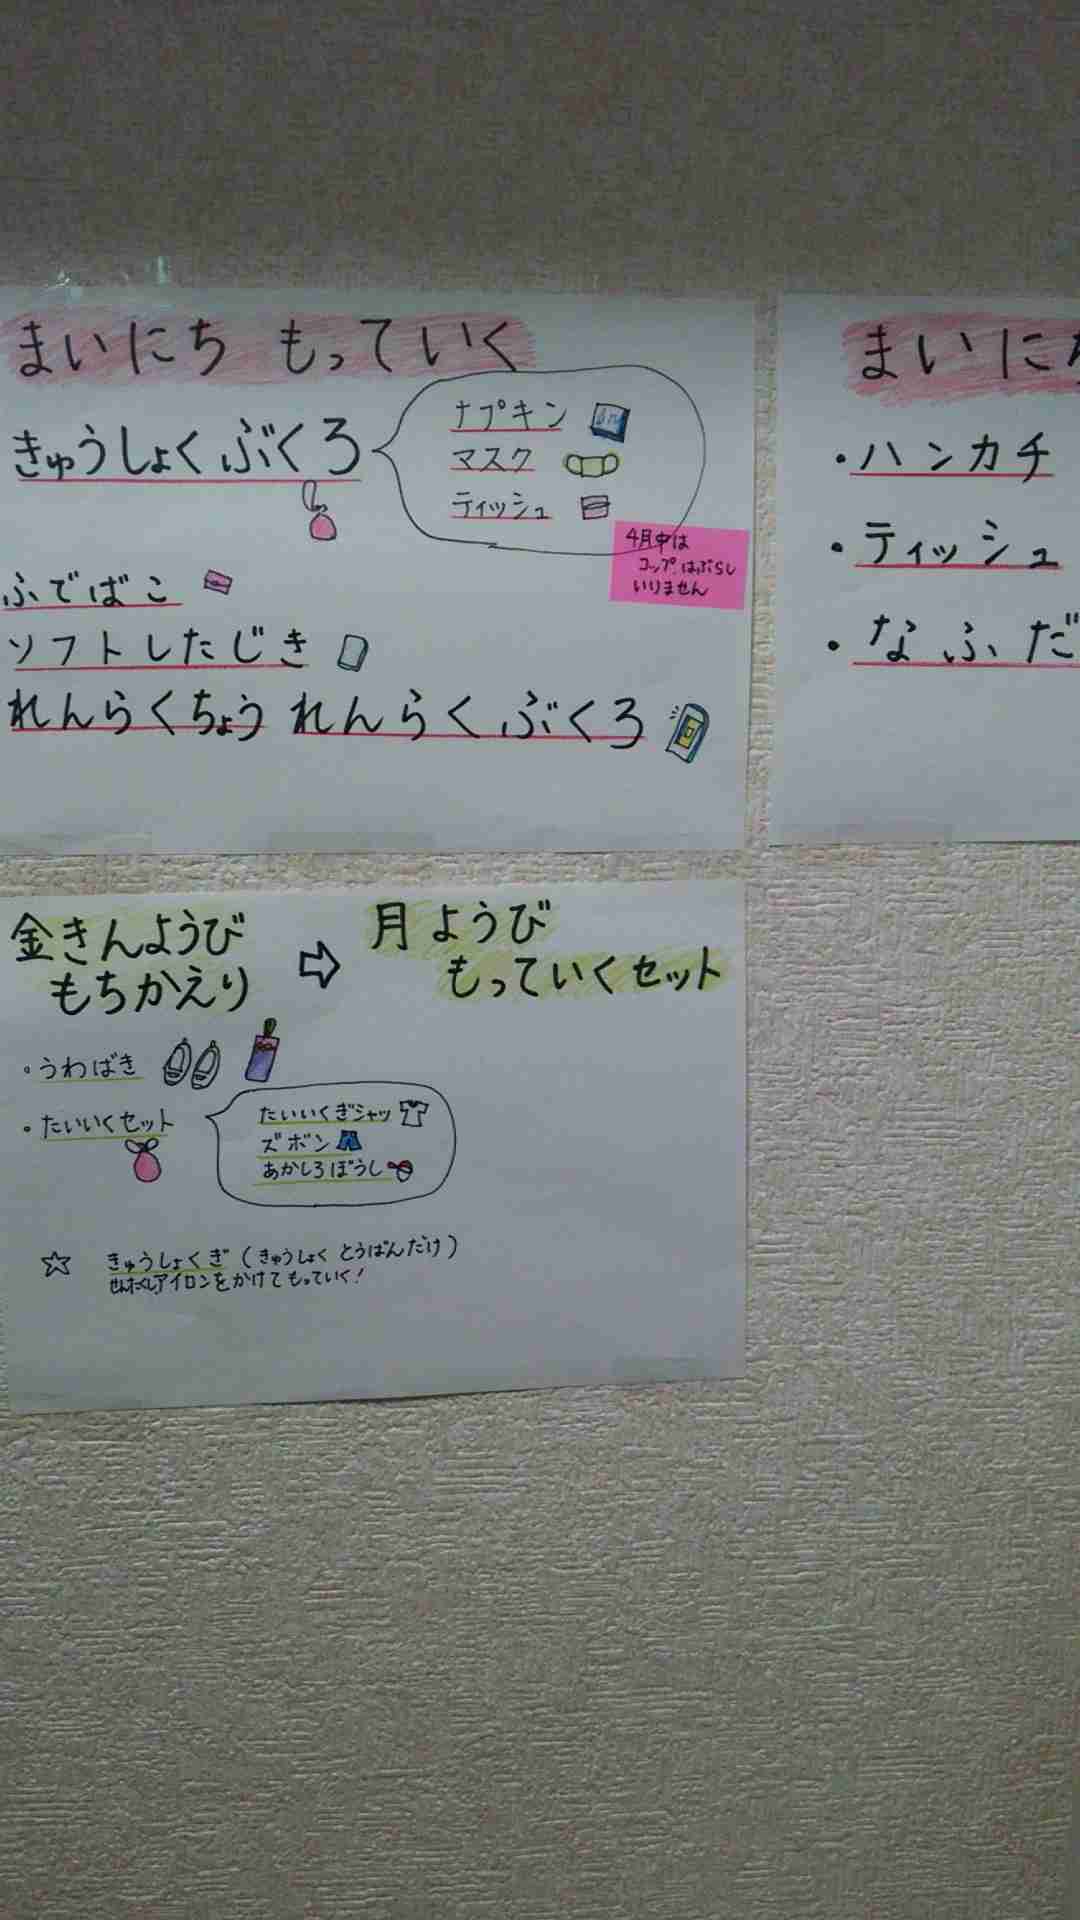 まいにち もっていく
きゅうしょくぶくろ
ナプキン
マスク
ティッシュ
4月中は
コップ はぶらし
いりません
ふでばこ
ソフトしたじき
れんらくちょう れんらくぶくろ
まいに
・ハンカチ
・ティッシュ
・なふだ
金きんようび
もちかえり
⇨
月ようび
もっていくセット
・うわばき
・たいいくセット
たいいくぎシャツ
ズボン
あかしろぼうし
☆ きゅうしょくぎ (きゅうしょく とうばんだけ)
せんたくしアイロンをかけてもっていく!